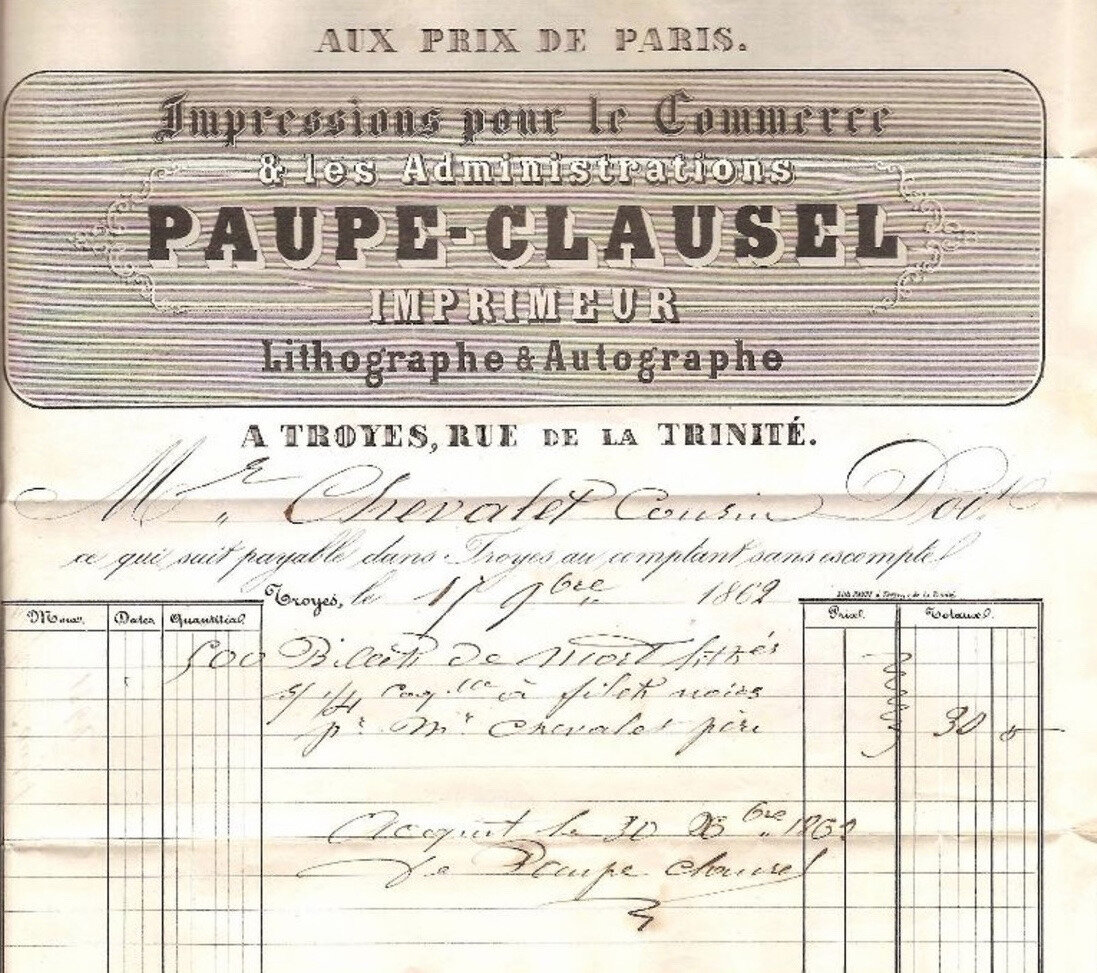 AUX PRIX DE PARIS.
Impressions pour le Commerce
& les Administrations
PAUPE-CLAUSEL
IMPRIMEUR
Lithographe & Autographe
A TROYES, RUE DE LA TRINITÉ.
Mr Chevalet Cousin Doit
ce qui suit payable dans Troyes au comptant sans escompte
Troyes, le 17 9bre 1862
Mois. Dates Quantités Prix. Totaux.
500 Billets de mort
s/ 1/4 coq lle à filets noirs
pr Mr Chevalet père 30
Acquit le 30 1862
Paupe Clausel